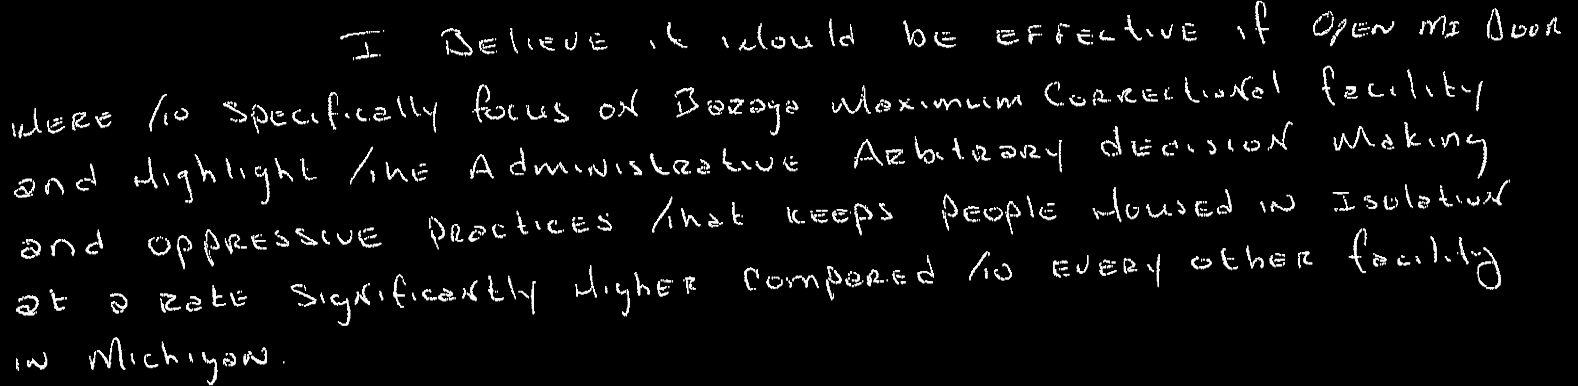 I Believe it would be effective if Open MI Door
were to specifically focus on Baraga Maximum Correctional facility
and Highlight the Administrative Arbitrary decision Making
and oppressive practices that keeps people Housed in Isolation
at a rate significantly Higher compared to every other facility
in Michigan.